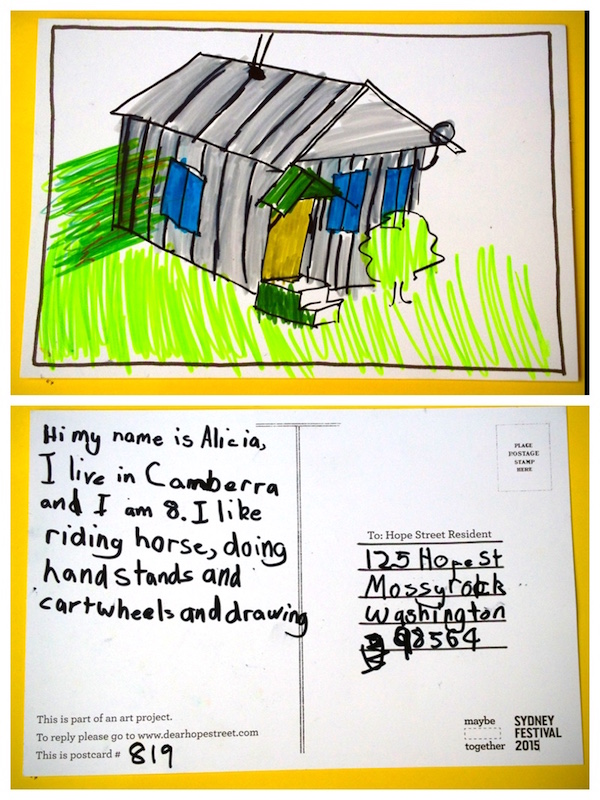 Hi my name is Alicia,
I live in Camberra
and I am 8. I like
riding horse, doing
handstands and
cartwheels and drawing
PLACE
POSTAGE
STAMP
HERE
To: Hope Street Resident
125 Hope St
Mossyrock
Washington
98564
This is part of an art project.
To reply please go to www.dearhopestreet.com
This is postcard # 819
maybe
together
SYDNEY
FESTIVAL
2015